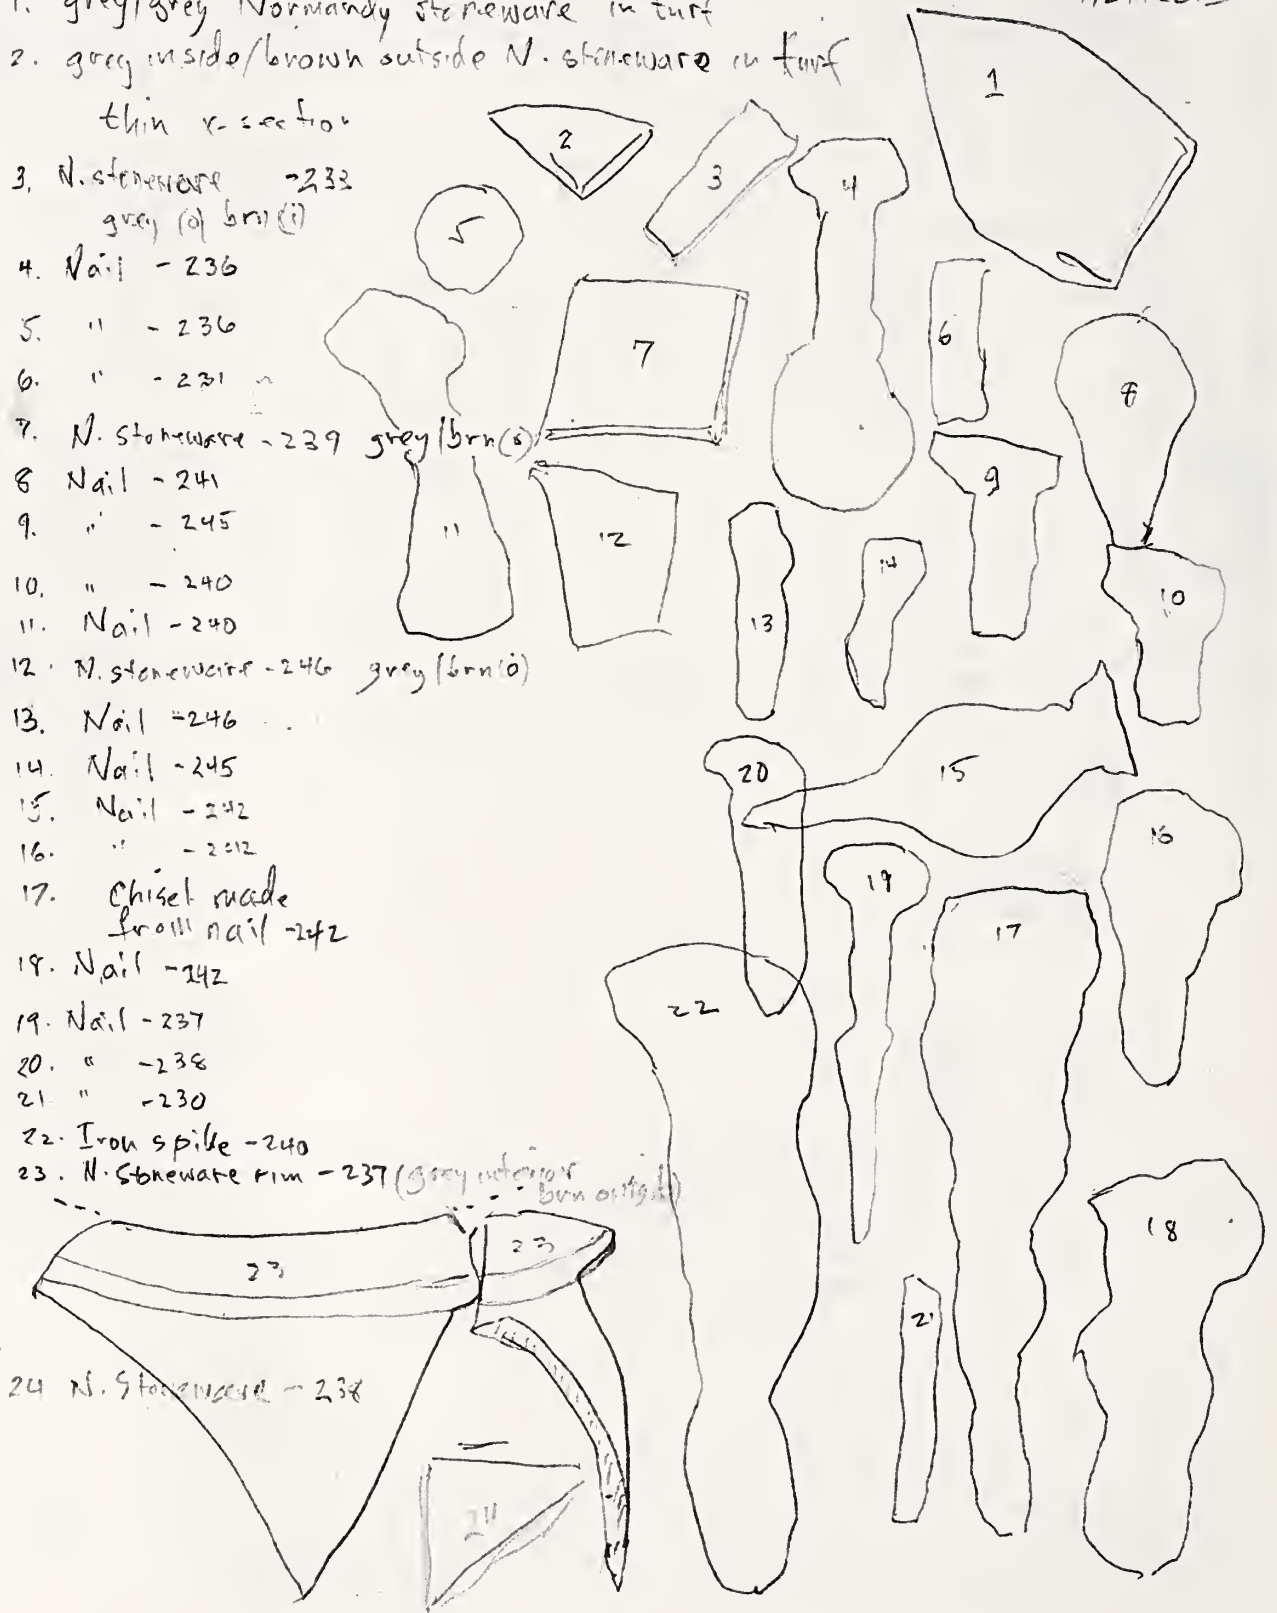 1. grey/grey Normandy stoneware in turf
2. grey inside/brown outside N. stoneware in turf
thin x-section
3. N. stoneware -233
grey (o) brn (i)
4. Nail - 236
5. " - 236
6. " - 231
7. N. stoneware - 239 grey/brn(o)
8 Nail - 241
9. " - 245
10. " - 240
11. Nail - 240
12. N. stoneware - 246 grey/brn(o)
13. Nail -246
14. Nail -245
15. Nail - 242
16. " - 242
17. Chisel made
from nail -242
18. Nail -242
19. Nail -237
20. " -238
21 " -230
22. Iron spike -240
23. N. Stoneware rim - 237 (grey interior
brn outside)
24 N. Stoneware - 238
1
2
3
4
5
6
7
8
9
10
11
12
13
14
15
16
17
18
19
20
21
22
23
23
24